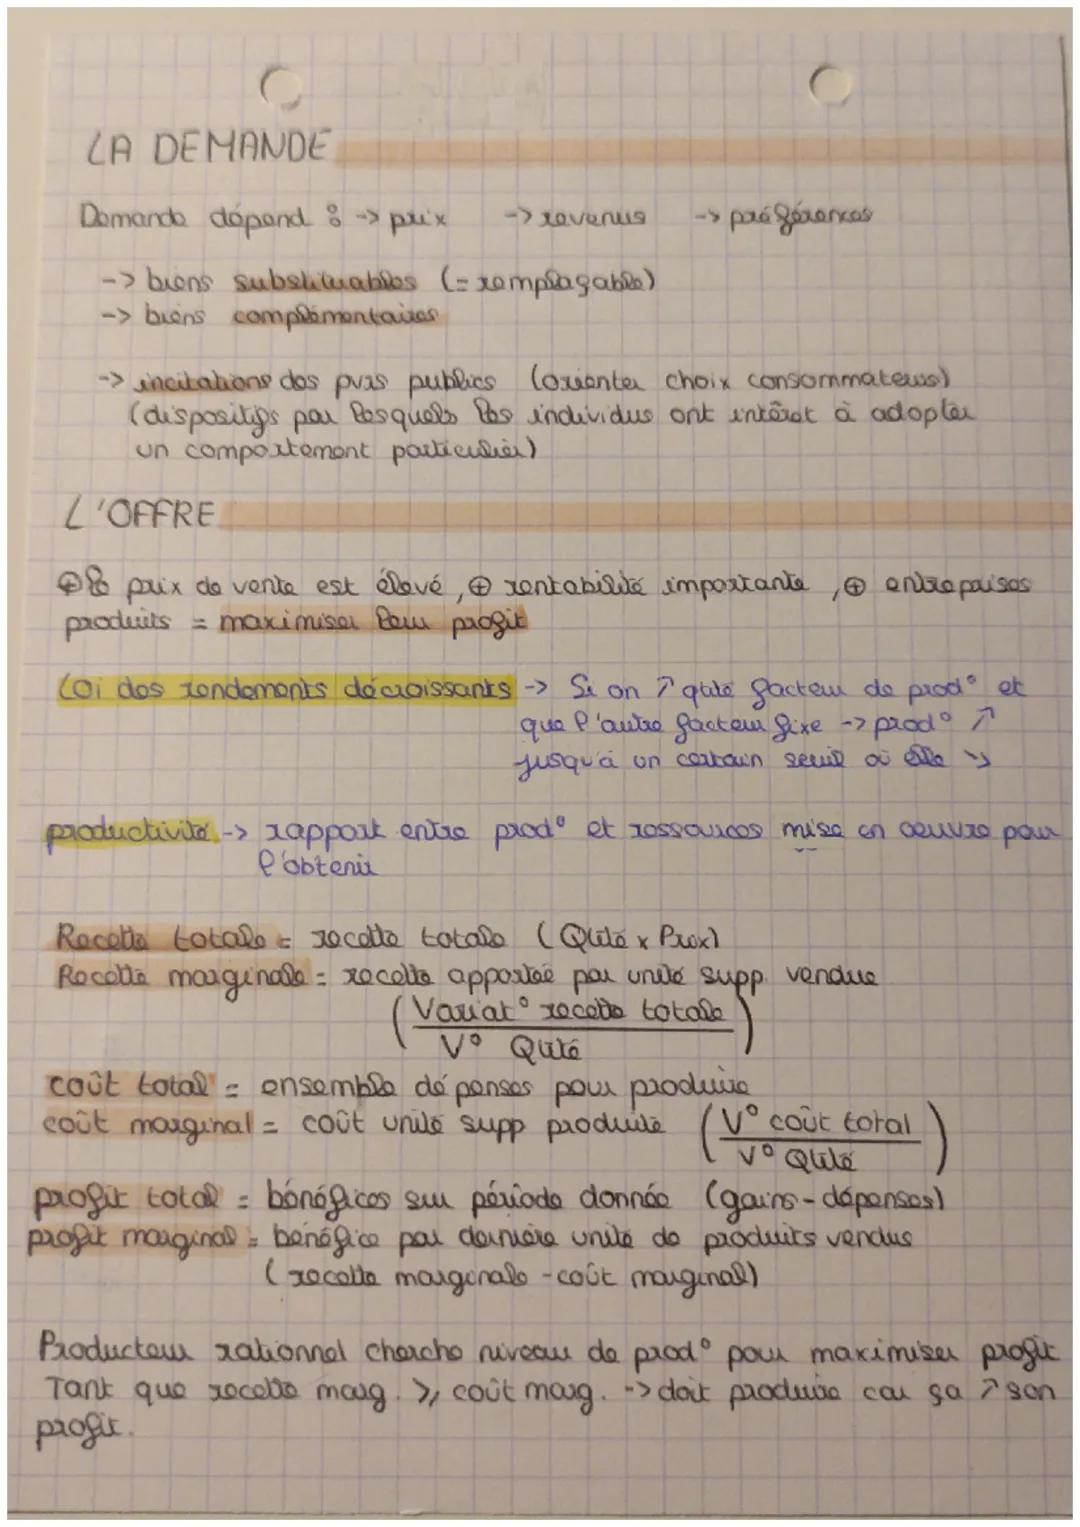 LA DEMANDE
Demande dépend : -> prix -> revenus -> préférences
-> biens substituables (= remplaçable)
-> biens complémentaires
-> incitations des pvrs publics (orienter choix consommateurs)
(dispositifs par lesquels les individus ont intérêt à adopter
un comportement particulier)
L'OFFRE
⊕ le prix de vente est élevé, ⊕ rentabilité importante, ⊕ entreprises
produits = maximiser leur profit
Loi des rendements décroissants -> Si on ↗ qtité facteur de prod° et
que l'autre facteur fixe -> prod° ↗
jusqu'à un certain seuil où elle ↘
productivité -> rapport entre prod° et ressources mise en oeuvre pour
l'obtenir
Recette totale = recette totale (Qtité x Prix)
Recette marginale = recette apportée par unité supp. vendue
(Variat° recette totale
V° Qtité)
coût total = ensemble dépenses pour produire
coût marginal = coût unité supp produite (V° coût total
V° Qtité)
profit total = bénéfices sur période donnée (gains - dépenses)
profit marginal = bénéfice par dernière unité de produits vendus
(recette marginale - coût marginal)
Producteur rationnel cherche niveau de prod° pour maximiser profit
Tant que recette marg. ⩾ coût marg. -> doit produire car ça ↗ son
profit.